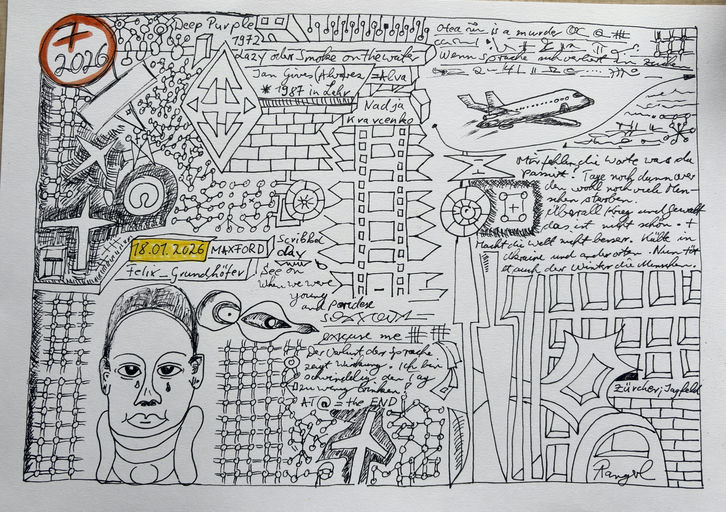 7
2026
Deep Purple
1972
Lazy oder Smoke on the water
Jan Gunes (Alvares = Alva
* 1987 in
Nadja
Kravcenko
is a murder
Wenn Sprache sich verliert in
Mir fehlen die Worte was da
passirt! Tage noch dunn over
der wohl noch viele Men-
schen starben.
Überall Krieg und Gewalt
das ist nicht schön. +
Macht die Welt nicht besser. Kält in
Ukraine und anderorten. Nun töt
et auch der Winter die Menschen.
18.01.2026 MAXFORD
Felix_Grundhöfer
Scribbel
day
See on
When we were
young
and
excuse me ##
Der Verlust der Sprache
zeigt Wirkung. Ich bin
schwindelig den Tag
zu wenig trunken
AT@ = the END
Zürcher, Jagfeld
Rangol